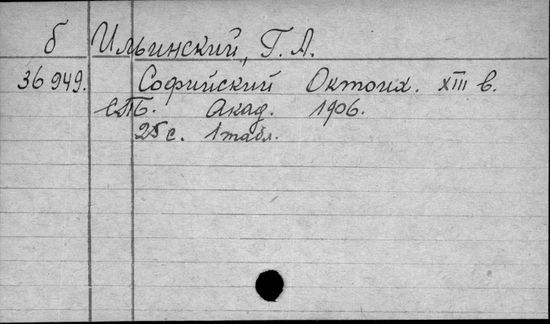 б Ильинский, Г. А.
36 949. Софийский Октоих. XIII в.
СПБ. Акад. 1906.
25 с. 1 табл.